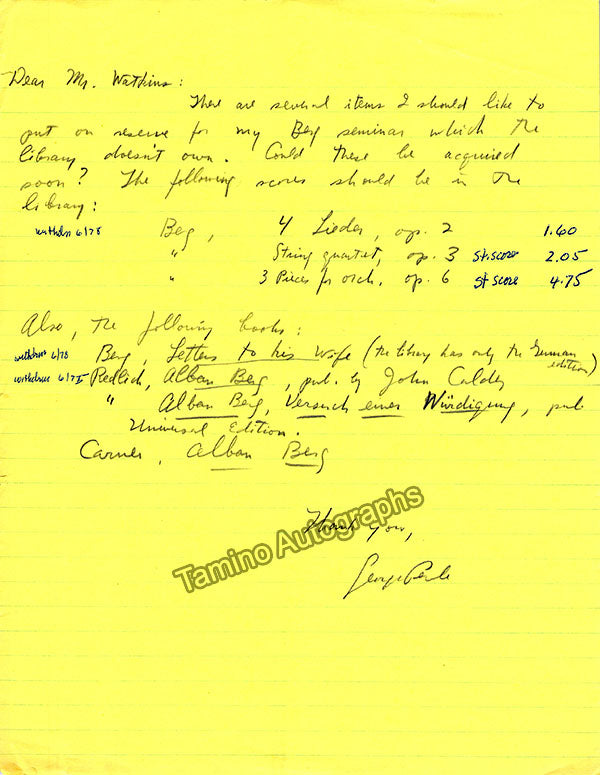 Dear Mr. Watkins:
There are several items I should like to
put on reserve for my Berg seminar which the
library doesn't own. Could these be acquired
soon? The following scores should be in the
library:
withdrn 6/78 Berg, 4 Lieder, op. 2 1.60
" String quartet, op. 3 st. score 2.05
" 3 Pieces for orch. op. 6 st score 4.75
Also, the following books:
withdrn 6/78 Berg, Letters to his Wife (the library has only the German
edition)
withdrew Redlich, Alban Berg, pub. by John Calder
" Alban Berg, Versuch einer Würdigung, pub
Universal Edition.
Carner, Alban Berg
Thank you,
George Perle
Tamino Autographs